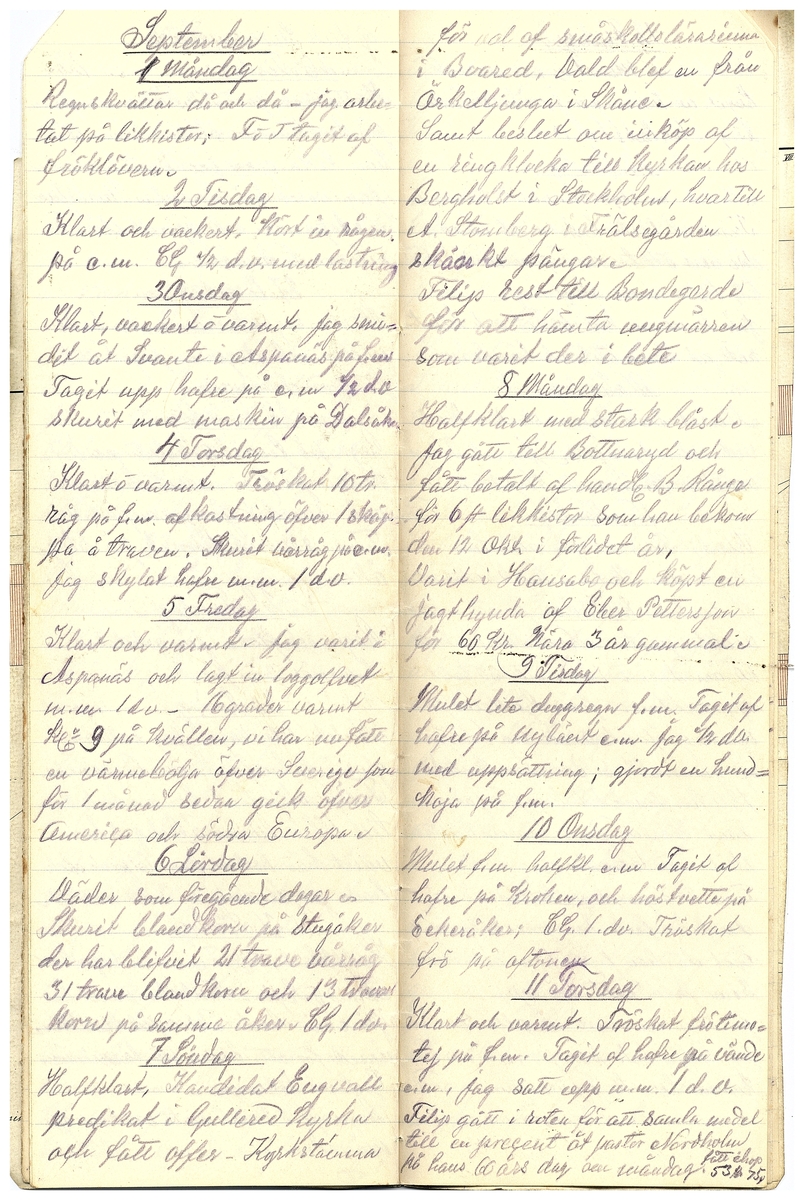 September
1 Måndag
Regnskvättar då och då – jag arbe=
tat på likkistor; F o T tagit af
fröklövern.
2 Tisdag
Klart och vackert. Kört in rågen
på e.m. CG 1/2 d.v. med lastning
3 Onsdag
Klart, vackert o varmt. jag smi=
dit åt Svante i Aspanäs på f.m
Taget upp hafre på e.m 1/2 d.v
skurit med maskin på Dalsåk
4 Torsdag
Klart o varmt. Tröskat 10 tr.
råg på f.m. afkastning öfver 1 skäp
pa å traven. Skurit vårråg på e.m.
jag skylat hafre m.m. 1 d.v.
5 Fredag
Klart och varmt. jag varit i
Aspanäs och lagt in loggolfvet
m.m 1 d.v. – 16 grader varmt
kl 9 på kvällen, vi har nu fått
en värmebölja öfver Sverige som
för 1 månad sedan gick öfver
America och södra Europa.
6 Lördag
Väder som föregående dagar.
Skurit blandkorn på Stugåker
der har blifvit 21 trave vårråg
31 trave blandkorn och 13 travar
korn på samma åker. CG 1 d.v.
7 Söndag
Halfklart, Kandidat Engvall
predikat i Gullered kyrka
och fått offer – Kyrkstämma
för val af småskollslärarinna
i Bvared. Vald blef en från
Örkelljunga i Skåne.
Samt beslut om inköp af
en ringklocka till kyrkan hos
Bergholst i Stockholm, hvartill
A. Stomberg i Frälsegården
skänkt pängar.
Filip rest till Bondegärde
för att hämta ungmärren
som varit der i bete
8 Måndag
Halfklart med stark blåst.
Jag gått till Bottnaryd och
fått betalt af handl. B. Rånge
för 6 st likkistor som han bekom
den 12 Okt i förlidet år,
Varit i Hansabo och köpt en
jagthynda af Eber Pettersson
för 60 kr. Nära 3 år gammal.
9 Tisdag
Mulet lite duggregn f.m. Taget af
hafre på nyläert e.m. jag 1/2 d.v.
med uppsättning; gjordt en hund=
koja på f.m.
10 Onsdag
Mulet f.m. halfkl. e.m Taget af
hafre på Krohen, och höstvette på
Eckeråker; CG. 1. d.v. Tröskat
frö på aftonen
11 Torsdag
Klart och varmt. Tröskat frötimo=
tej på f.m. Taget af hafre på vände
e.m, jag satt upp m.m. 1 d.v.
Filip gått i roten för att samla medel
till en present åt pastor Nordholm
på hans 60 års dag om måndag. fått ihop
53 kr 75.